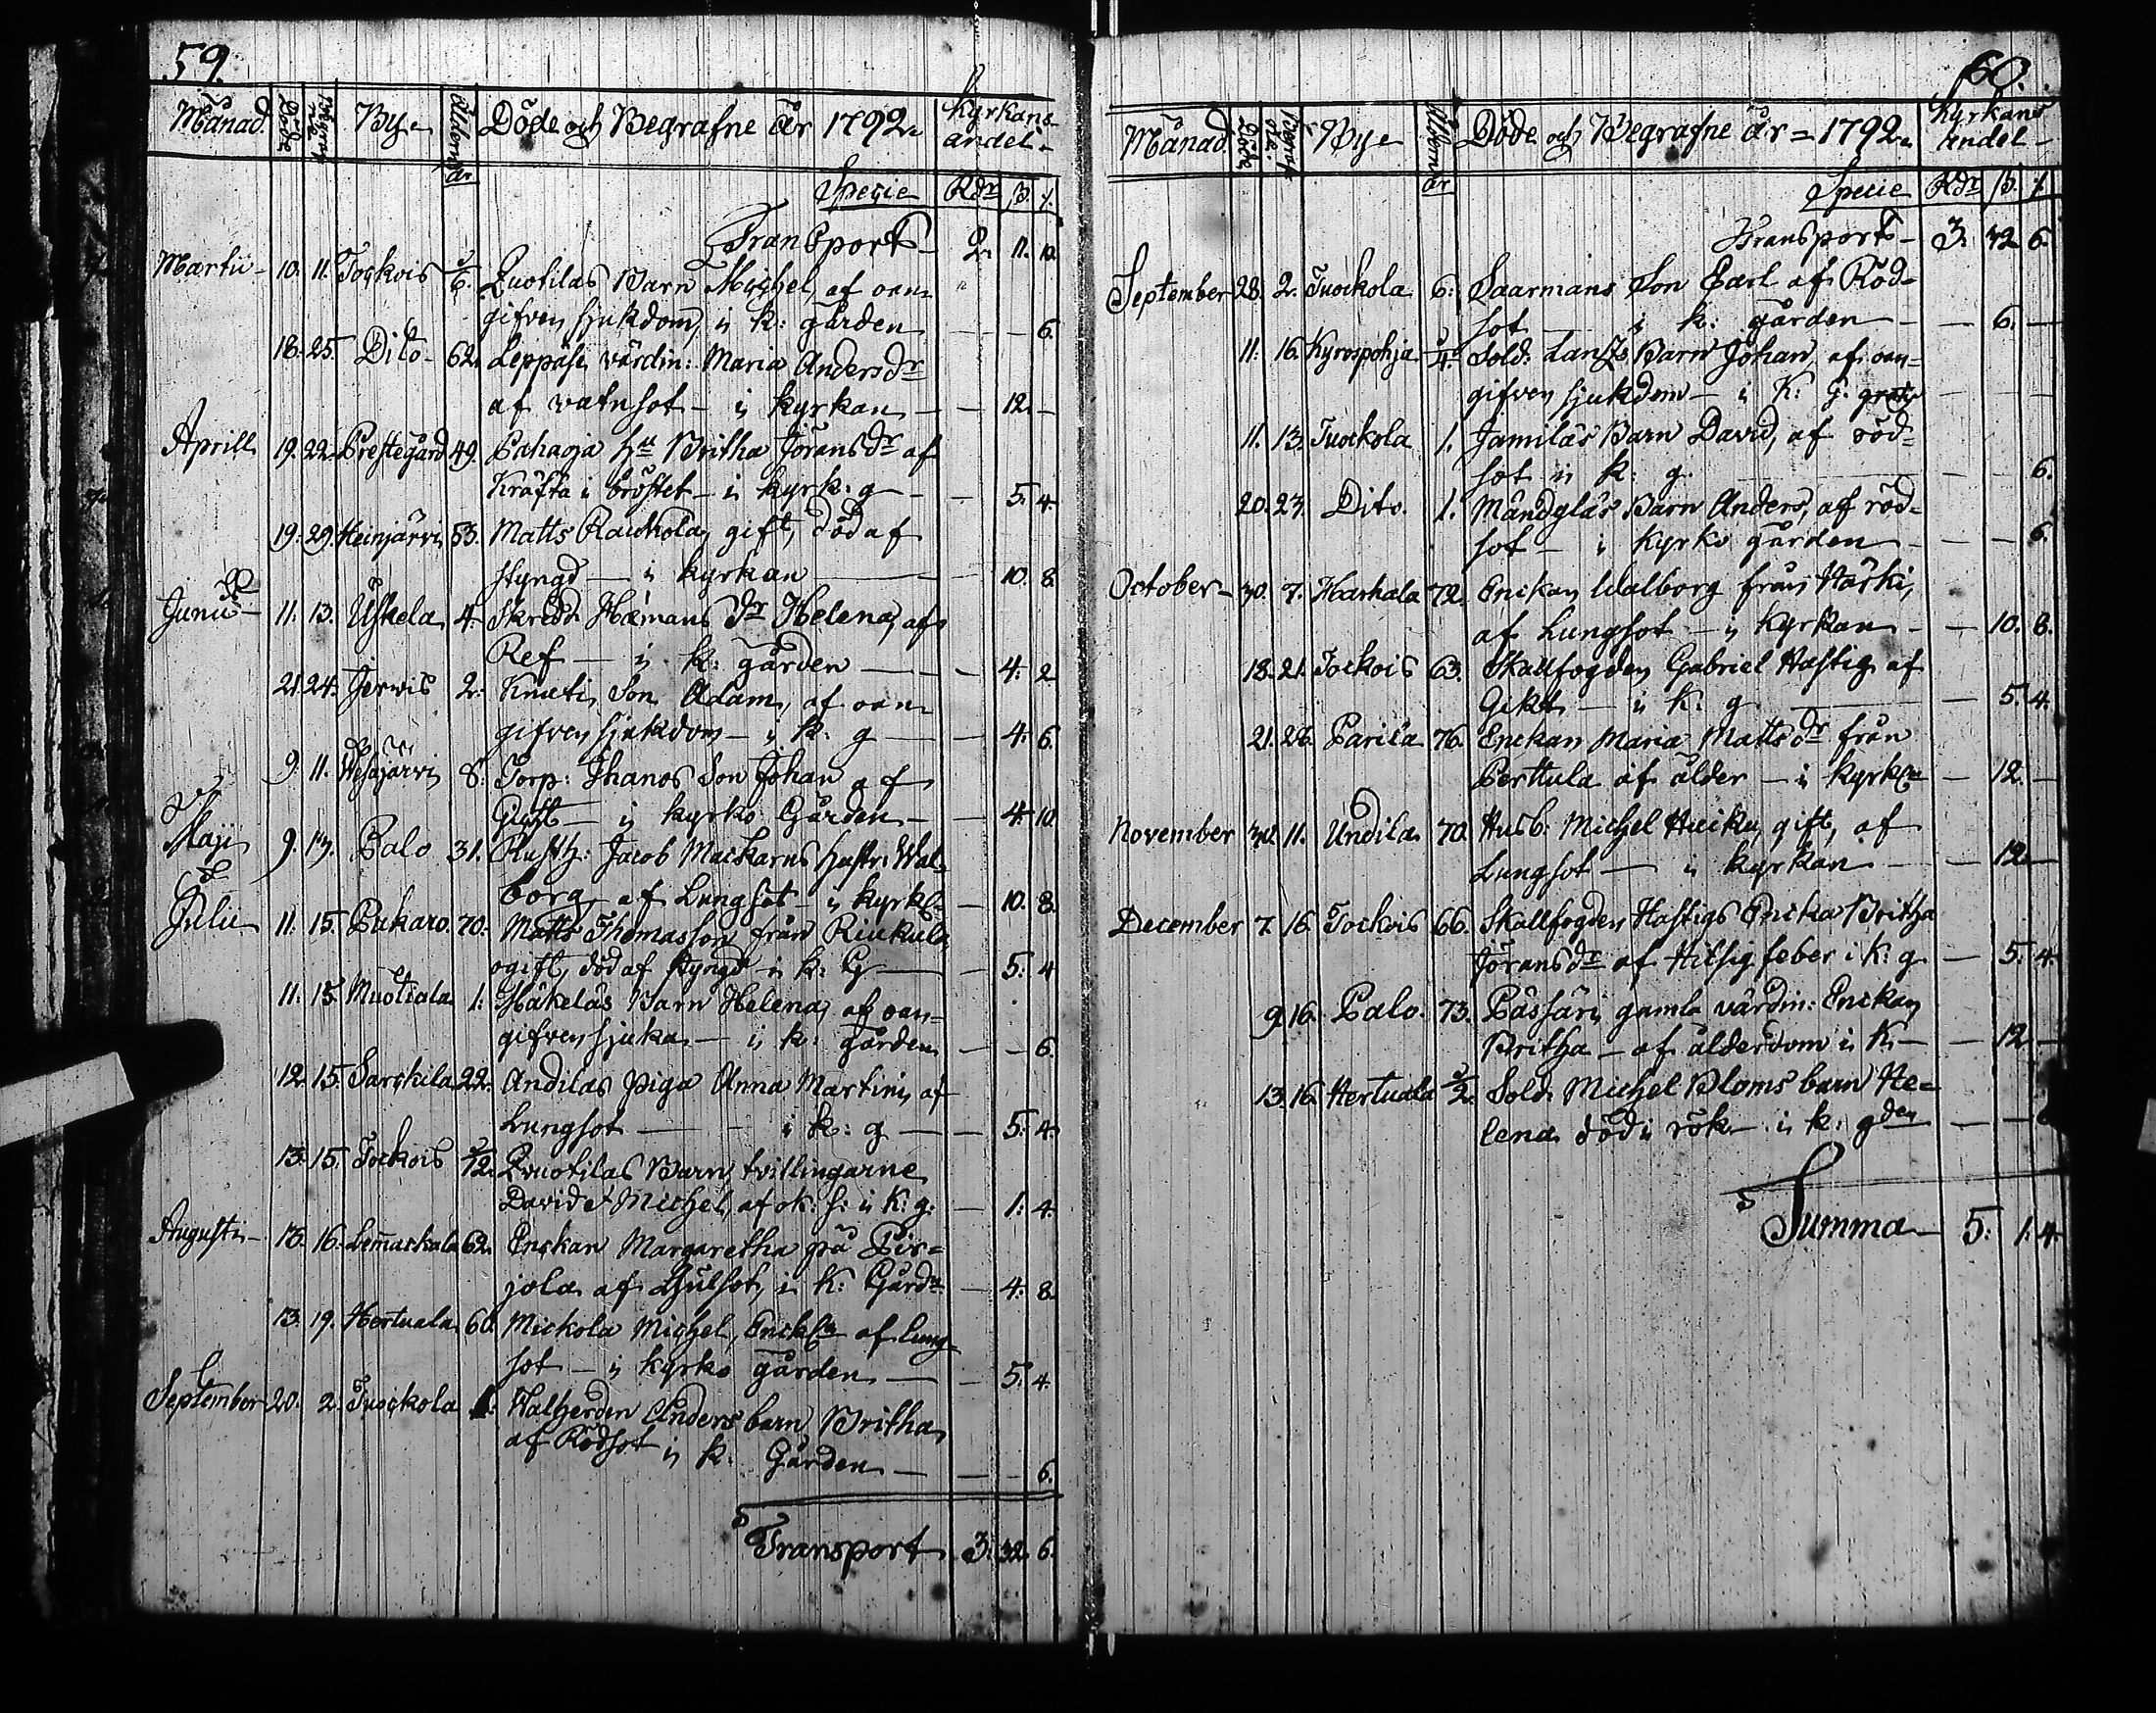 59.
Månad. Döde Begrafne By Ålder år Döde och Begrafne år 1792 Kyrkans andel
Specie Rdr ß. /.
Transport 2. 11. 10.
Martii 10. 11. Jockois /6. Luotilas Barn Michel, af oan-
gifven sjukdom, i k: gården — — 6.
18. 25. Dito 62. Leppäs värdin: Maria Andersdr
af vatusot — i kyrkan — 12. —
Aprill 19. 22. Prestegård 49. Pahaoja Hu Britha Jöransdr af
Kräfta i bröstet — i kyrk: g — 5. 4.
19. 29. Heinjärvi 53. Matts Raickola, gift, död af
styngd — i kyrkan — 10. 8.
Junii 11. 13. Uskela 4. Skredd: Hæmans dr Helena, af
Ref — i k: gården — 4. 2
21. 24. Jerwis 2. Knuti Son Adam, af oan-
gifven sjukdom — i k: g — 4. 6.
9. 11. Wesajärvi 8. Torp: Ihanos Son Johan af
— i kyrko Gården — 4. 10.
Maji 9. 13. Palo 31. Rusth: Jacob Mackarus hustr: Wal-
borg, af Lungsot — i kyrk — 10. 8.
Julii 11. 15. Pukaro 70. Matts Thomasson från Riukula,
ogift, död af styngd i k: G — 5. 4
11. 15. Muotiala 1. Häkeläs Barn Helena, af oan-
gifven sjuka — i k: gården — — 6.
12. 15. Sarckila 22. Andilas piga Anna Martini, af
Lungsot — i k: g — 5. 4.
13. 15. Jockois /12. Luotilas Barn, tvillingarne
David & Michel, af ok: s: i k: g: — 1. 4.
Augusti 13. 16. Lemmackala 62. Enckan Margaretha på Pir-
jola af Gulsot, i k: Gårdn — 4. 8.
13. 19. Hertuala 60. Mickola Michel, Enckl af lung-
sot — i kyrko gården — 5. 4.
September 20. 2. Tuockola 1. Walherden Anders barn Britha,
af Rödsot i k. Gården — — 6.
Transport 3. 32. 6.
60.
Månad Döde Begrafne By Ålder år Döde och Begrafne år = 1792 Kyrkans andel
Specie Rdr ß. /.
Transport — 3. 32 6.
September 28. 2. Tuockola 6. Saarmans Son Carl af Röd-
sot — i k: gården — — 6. —
11. 16. Kyrospohja /4. Sold: Lansts Barn Johan, af oan-
gifven sjukdom — i K: G. gratis — — —
11. 13. Tuockola 1. Jamiläs Barn David, af röd-
sot i k: g. — — 6.
20. 23. Dito. 1. Mändyläs Barn Anders, af röd-
sot — i kyrko gården — — 6.
October — 30. 7. Harhala 72. Enckan Walborg från Härki,
af Lungsot — i kyrkan — — 10. 8.
18. 21. Jockois 63. Skallfogden Gabriel Hastig af
Gickt — i k: g — — 5. 4.
21. 28. Parila 76. Enckan Maria Mattsdr från
Perttula af ålder — i kyrkn — 12. —
November 30. 11. Undila 70. Husb: Michel Hucka, gift, af
Lungsot — i kyrkan — — 12. —
December 7. 16. Jockois 66. Skallfogden Hastigs Encka Britha
Jöransdr af Hitsig feber i k: g — 5. 4.
9. 16. Palo. 73. Pässäri gamla värdin: Enckan
Britha — af ålderdom i K. — — 12 —
13. 16. Hertuala /2. Sold: Michel Bloms barn He-
lena död i rök — i k: gden — —
Summa — 5. 1. 4.